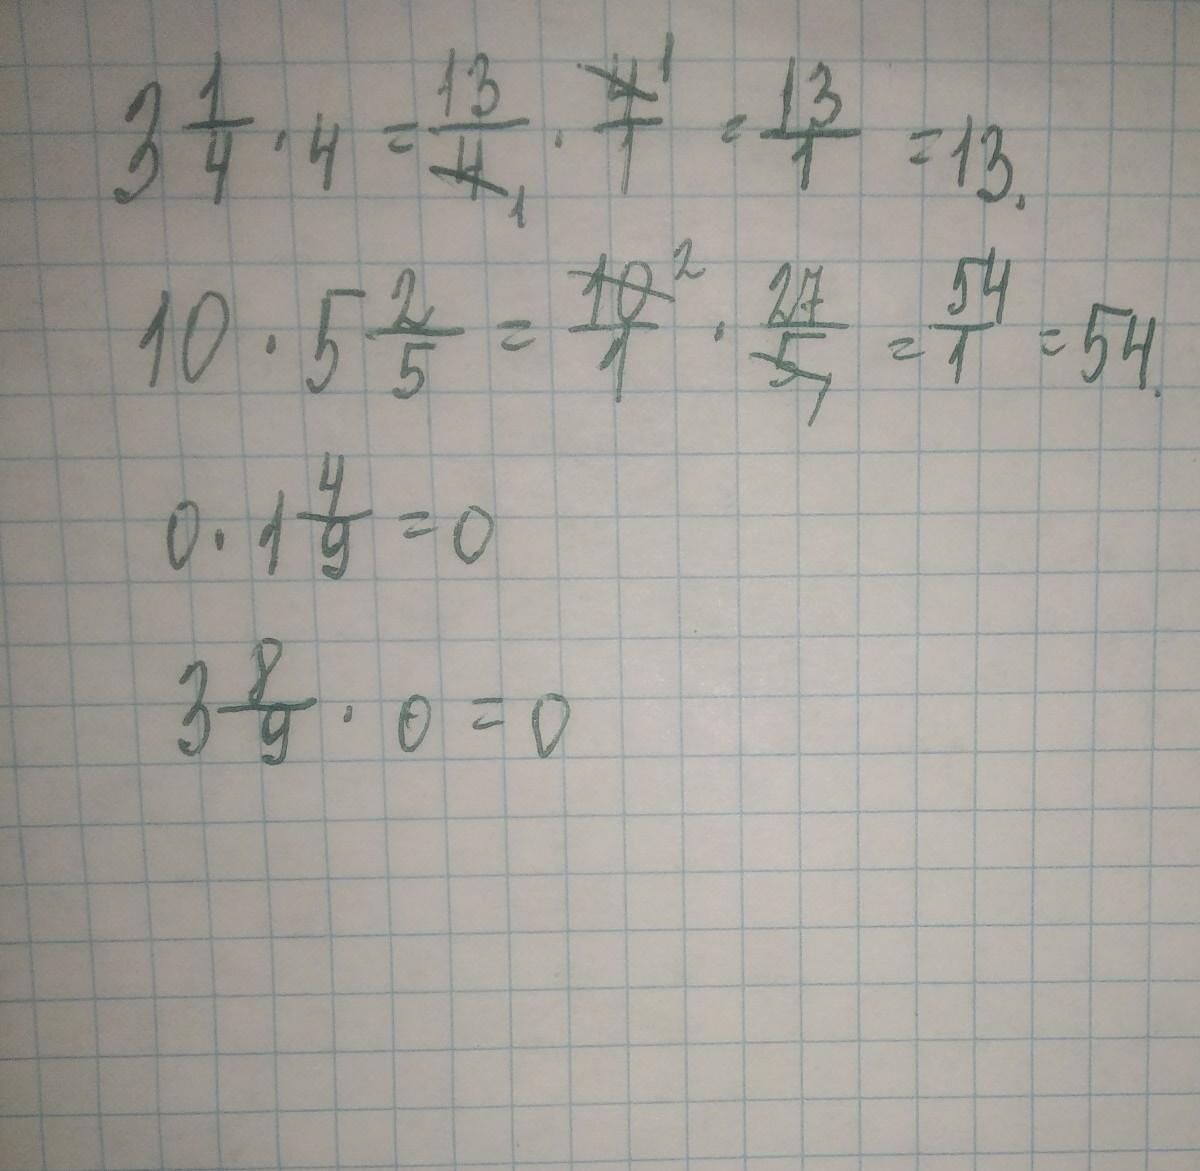 3 1/4 · 4 = 13/4 1 · 4/1 1 = 13/1 = 13.
10 · 5 2/5 = 10/1 2 · 27/5 1 = 54/1 = 54.
0 · 1 4/9 = 0
3 8/9 · 0 = 0